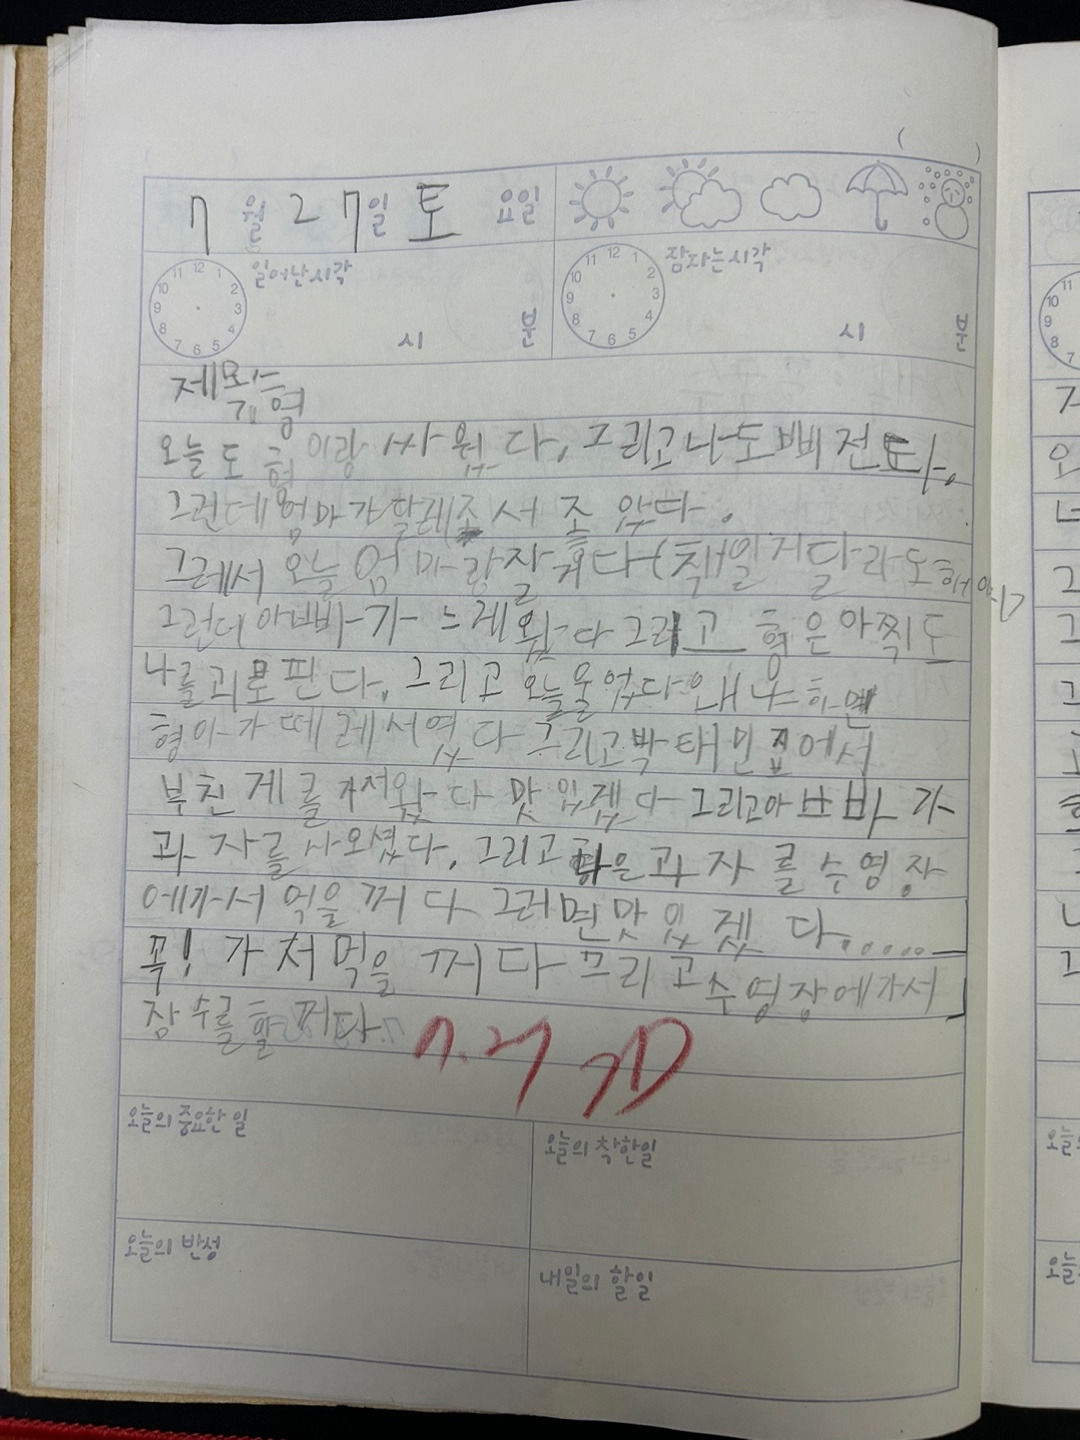 7월 27일 토 요일
11 12 1 10 2 9 3 8 4 7 6 5
일어난시각
시 분
11 12 1 10 2 9 3 8 4 7 6 5
잠자는시각
시 분
제목 형
오늘도 형이랑 싸웠다. 그리고 나도 삐전따.
그런데 엄마가 달레조서 조았다.
그레서 오늘 엄마랑 잘 꺼다(책일지달라도해야지)
그런데 아빠가 느제왔다 그리고 형은 아찍도
나를 괴로핀다. 그리고 오늘 울었다 왜냐하면
형아가 떼레서였다 그리고 박태민 집에서
부친게를 가저왔다 맛있겠다 그리고 아쁘빠가
과자를 사오셨다. 그리고 과자를 수영장
에가서 먹을꺼다 그러면 맛있겠다......
꼭! 가처먹을꺼다 그리고 수영장에가서
잠수를 할꺼다
7.27
오늘의 중요한 일
오늘의 착한일
오늘의 반성
내일의 할일